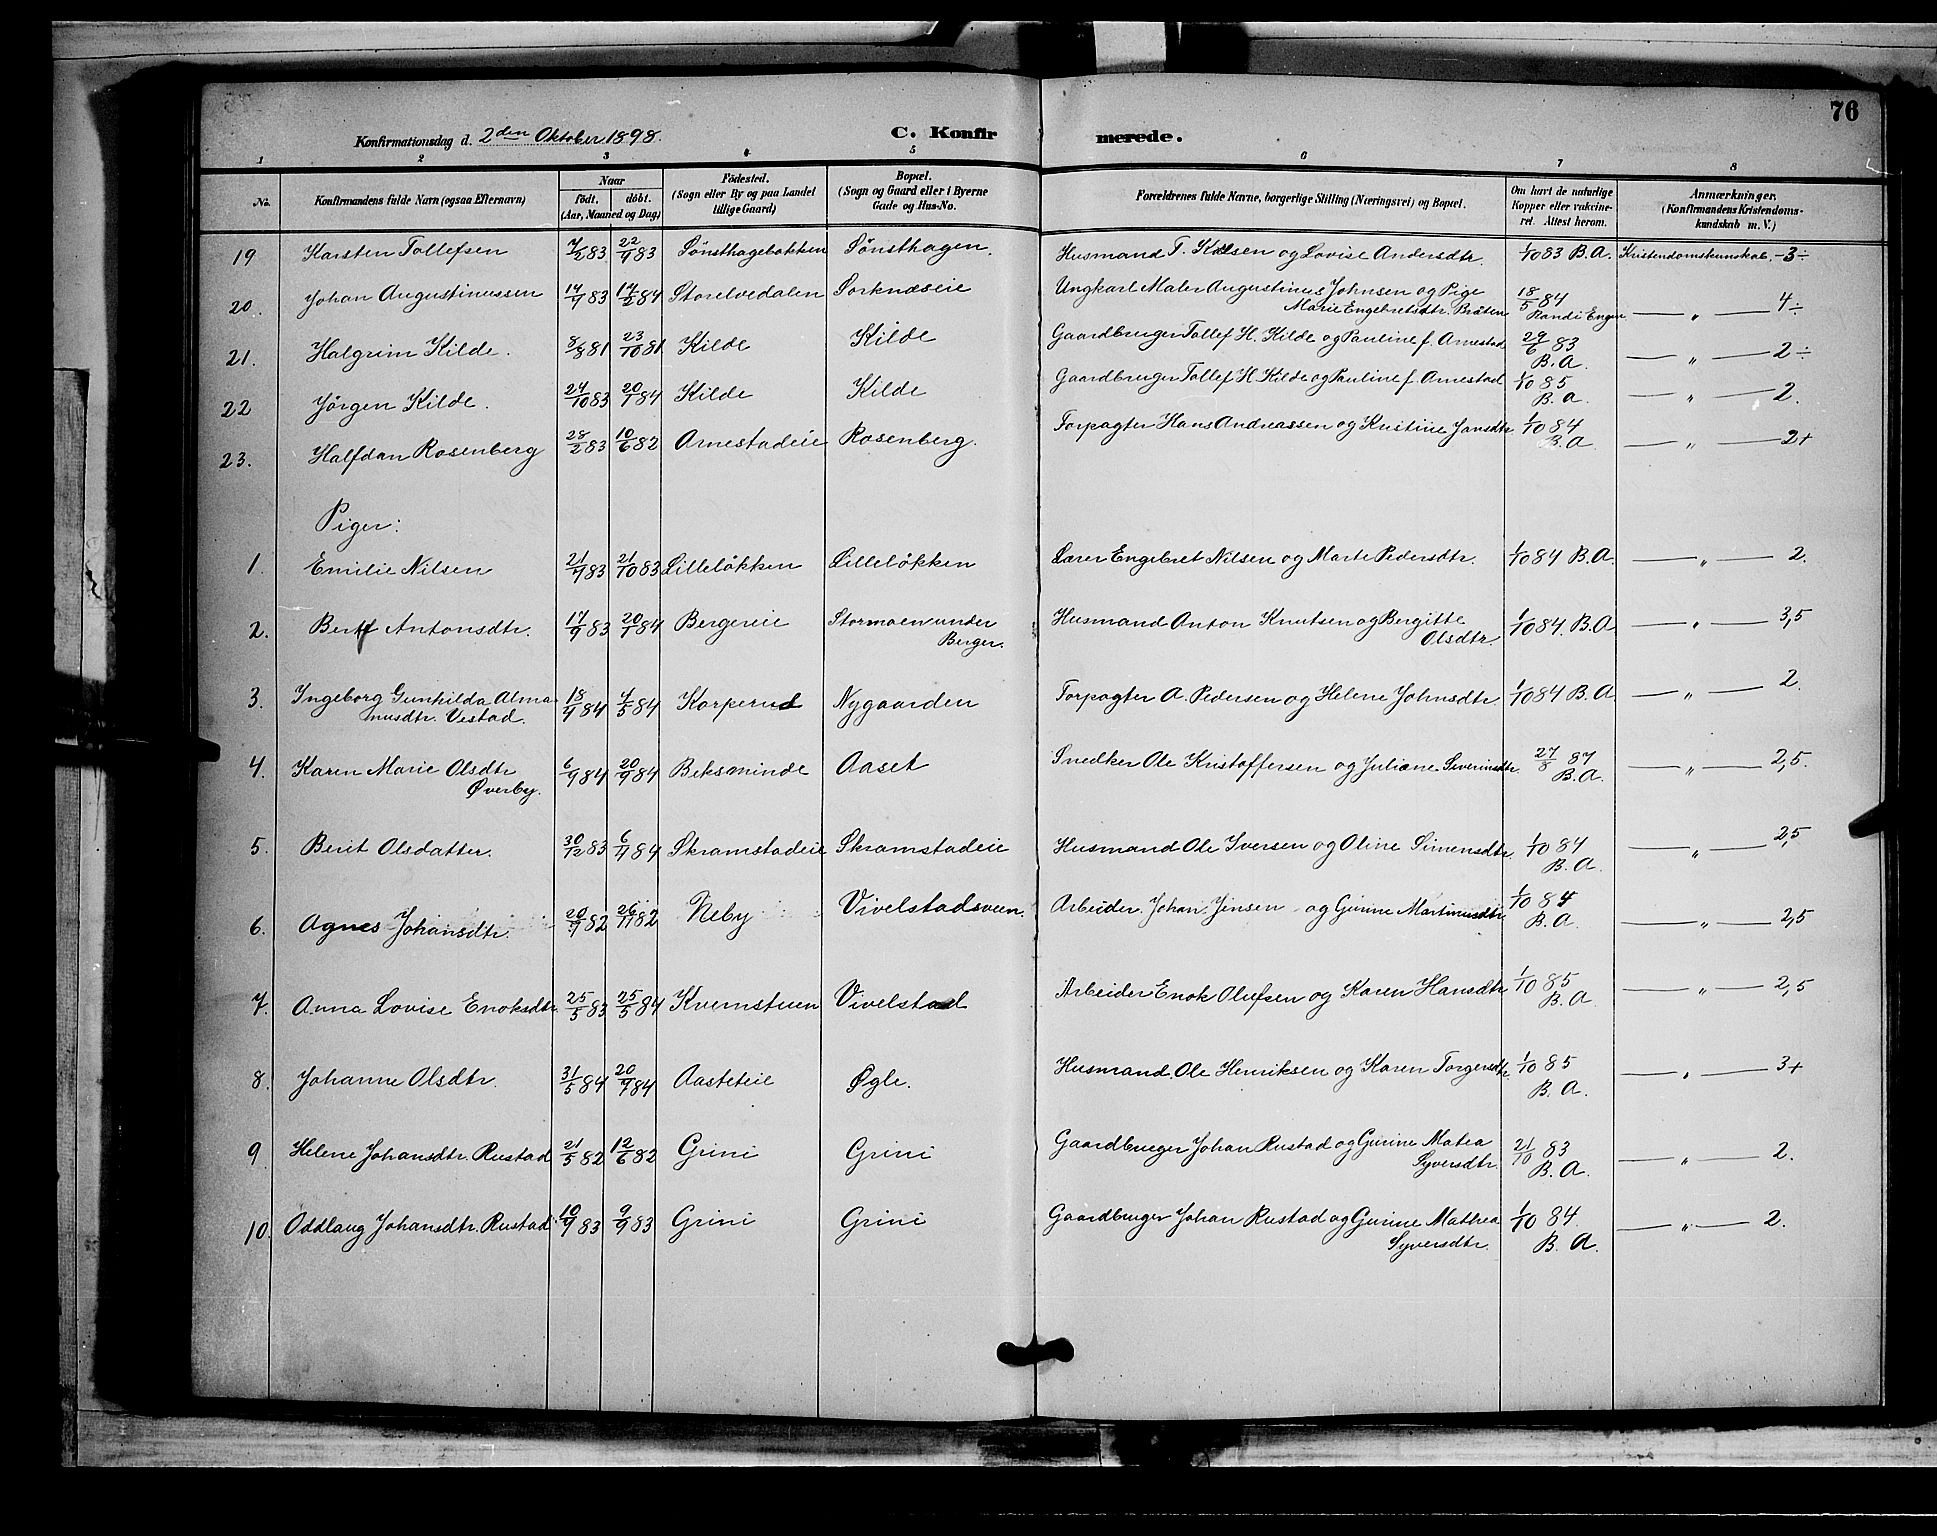 76
Konfirmationsdag d. 2den Oktober 1898.
C. Konfirmerede.
1 2 3 4 5 6 7 8
No. Konfirmandens fulde Navn (ogsaa Efternavn) Naar födt. döbt. (Aar, Maaned og Dag) Födested. (Sogn eller By og paa Landet tillige Gaard) Bopæl. (Sogn og Gaard eller i Byerne Gade og Hus-No. Forældrenes fulde Navne, borgerlige Stilling (Næringsvei) og Bopæl. Om havt de naturlige Kopper eller vakcineret. Attest herom. Anmærkninger. (Konfirmandens Kristendomskundskab m. V.)
19 Karsten Tollefsen 7/2 83 22/9 83 Sønsthagebakken Sønsthagen. Husmand T. Karlsen og Lovise Andersdtr. 1/10 83 B.A. Kristendomskunskab. -3÷
20. Johan Augustinussen 14/9 83 14/2 84 Storelvedalen Sorknæseie Ungkarl Maler Augustinus Johnsen og Pige Marie Engebretsdtr. Bråten 18/5 84 Randi Engen — „ — 4÷
21. Halgrim Kilde. 8/8 81 23/10 81 Kilde Kilde Gaardbruger Tollef H. Kilde og Pauline f. Arnestad 29/6 83 B.A. — „ — 2÷
22 Jørgen Kilde. 24/10 83 20/1 84 Kilde Kilde Gaardbruger Tollef H. Kilde og Pauline f. Arnestad 1/10 85 B.A. — „ — 2.
23. Halfdan Rosenberg 28/2 83 10/6 82 Arnestadeie Rosenberg. Forpagter Hans Andreassen og Kristine Jansdtr 1/10 84 B.A — „ — 2+
Piger:
1. Emilie Nilsen 21/9 83 21/10 83 Lilleløkken Lilleløkken Lærer Engebret Nilsen og Marte Pedersdtr. 1/10 84 B.A. — „ — 2.
2. Berit Antonsdtr. 17/9 83 20/1 84 Bergereie Stormoen under Berger. Husmand Anton Knutsen og Bergitte Olsdtr. 1/10 84. B.A — „ — 3,5
3. Ingeborg Gunhilda Almamusdtr. Vestad. 18/4 84 4/5 84 Korperud Nygaarden Forpagter A. Pedersen og Helene Johnsdtr. 1/10 84 B.A. — „ — 2.
4. Karen Marie Olsdtr Øverby. 6/9 84 20/9 84 Beksminde Aaset Snedker Ole Kristoffersen og Juliane Severinsdtr. 27/8 87 B.A. — „ — 2,5.
5. Berit Olsdatter. 30/12 83 6/4 84 Skramstadeie Skramstadeie Husmand Ole Iversen og Oline Simensdtr. 1/10 84 B.A. — „ — 2,5
6. Agnes Johansdtr. 20/9 82 26/11 82 Neby Vivelstadsveen. Arbeider. Johan Jensen og Gurine Martinusdtr 1/10 84 B.A. — „ — 2,5
7. Anna Lovise Enoksdtr. 25/5 83 25/5 84 Kvernstuen Vivelstad Arbeider Enok Olufsen og Karen Hansdtr 1/10 85 B.A — „ — 2,5
8. Johanne Olsdtr. 31/5 84 20/7 84 Aaseteie Øgle. Husmand. Ole Henriksen og Karen Torgersdtr. 1/10 85 B.A. — „ — 3+
9 Helene Johansdtr. Rustad 21/5 82 12/6 82 Grini Grini Gaardbruger Johan Rustad og Gurine Matea Syversdtr. 21/10 83 B.A. — „ — 2.
10. Oddlaug Johansdtr. Rustad. 10/9 83 9/9 83 Grini Grini Gaardbruger Johan Rustad og Gurine Mathea Syversdtr. 1/10 84. B.A. — „ — 2.